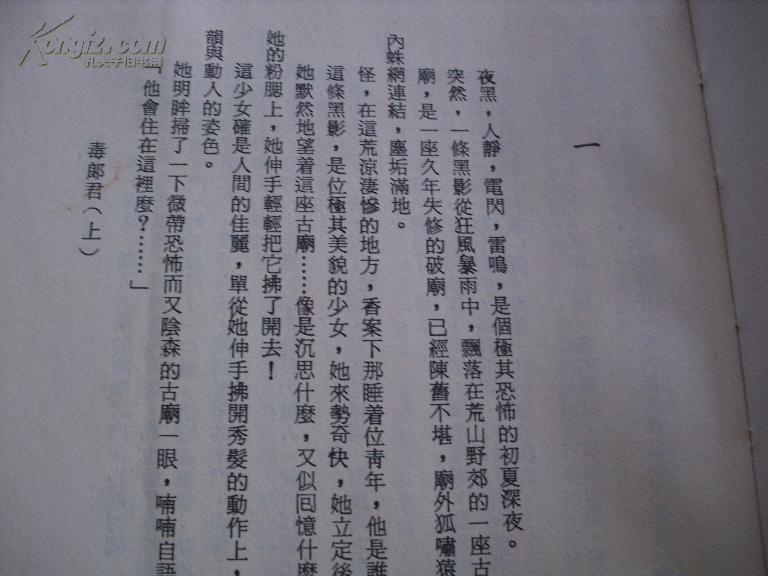 一
夜黑，人靜，電閃，雷鳴，是個極其恐怖的初夏深夜。
突然，一條黑影從狂風暴雨中，飄落在荒山野郊的一座古
廟，是一座久年失修的破廟，已經陳舊不堪，廟外狐嘯猿
內蛛網連結，塵垢滿地。
怪，在這荒涼淒慘的地方，香案下那睡着位青年，他是誰
這條黑影，是位極其美貌的少女，她來勢奇快，她立定後
她默然地望着這座古廟……像是沉思什麼，又似囘憶什麼
她的粉腮上，她伸手輕輕把它拂了開去！
這少女確是人間的佳麗，單從她伸手拂開秀髮的動作上，
韻與動人的姿色。
她明眸掃了一下微帶恐怖而又陰森的古廟一眼，喃喃自語
「他會住在這裡麼？……」
毒郎君（上）
Kongfz.com
孔夫子旧书网